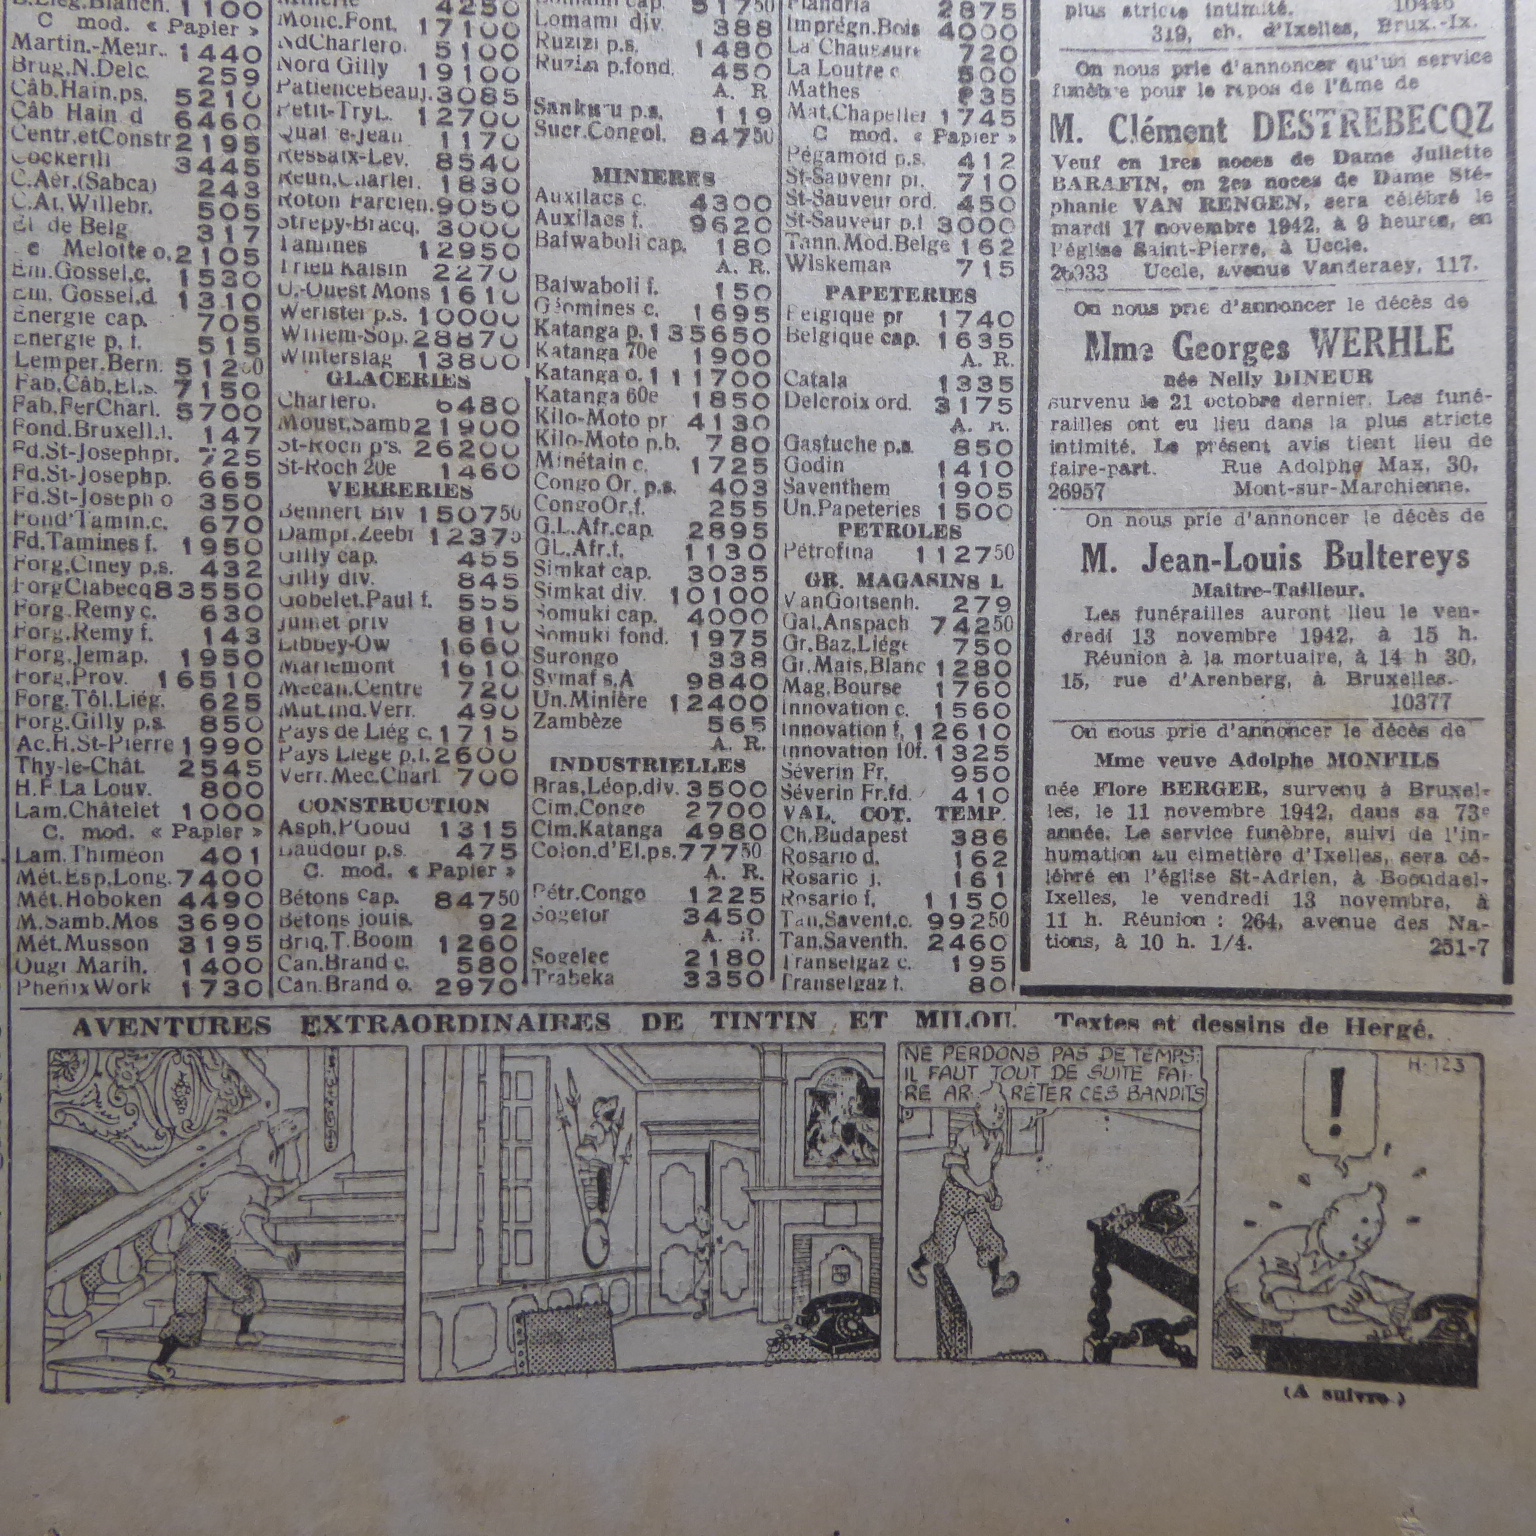 B.Lieg.Blanch. 1100
C mod. « Papier »
Martin.-Meur.. 1440
Brug.N.Delc. 259
Câb.Hain.ps. 5210
Câb Hain d 6460
Centr.etConstr 2195
Cockerill 3445
C.Aér.(Sabca) 243
C.At.Willebr. 505
El de Belg 317
Melotte o. 2105
Em.Gossel.c. 1530
Em. Gossel.d 1310
Energie cap. 705
Energie p. f. 515
Lemper.Bern. 512
Fab.Câb.El.s. 7150
Fab.FerCharl. 5700
Fond.Bruxell.i. 147
Fd.St-Josephpr. 725
Fd.St-Josephp. 665
Fd.St-Joseph o 350
Fond Tamin.c. 670
Fd.Tamines f. 1950
Forg.Ciney p.s. 432
ForgClabecq 83550
Forg.Remy c. 630
Forg.Remy f. 143
Forg.Jemap. 1950
Forg.Prov. 16510
Forg.Tôl.Liég. 625
Forg.Gilly p.s. 850
Ac.H.St-Pierre 1990
Thy-le-Chât. 2545
H.F.La Louv. 800
Lam.Châtelet 1000
C. mod. « Papier »
Lam.Thiméon 401
Mét.Esp.Long. 7400
Mét.Hoboken 4490
M.Samb.Mos 3690
Mét.Musson 3195
Ougr Marih. 1400
PhenixWork 1730
4250
Monc.Font. 17100
NdCharlero. 5100
Nord Gilly 19100
PatienceBeauj. 3085
Petit-TryL. 12700
Quat e-Jean 1170
Ressaix-Lev. 8540
Réun.Charler. 1830
Roton Farcien. 9050
Strépy-Bracq. 3000
Tamines 12950
Trieu Kaisin 2270
U.-Ouest Mons 1610
Werister p.s. 10000
Willem-Sop. 28870
Winterslag 13800
GLACERIES
Charlero. 6480
Moust.Samb 21900
St-Roch p's. 26200
St-Roch 20e 1460
VERRERIES
Bennert Biv 150750
Dampr.Zeebr 12375
Gilly cap. 455
Gilly div. 845
Gobelet.Paul f. 555
Jumet priv 810
Libbey-Ow 1660
Mariemont 1610
Mécan.Centre 720
Mut.Ind.Verr. 490
Pays de Liég c. 1715
Pays Liége p.f. 2600
Verr.Mec.Charl. 700
CONSTRUCTION
Asph.P'Goud 1315
Baudour p.s. 475
C. mod. « Papier »
Bétons cap. 84750
Bétons jouis. 92
Briq.T.Boom 1260
Can.Brand c. 580
Can.Brand o. 2970
Lomami cap. 51750
Lomami div. 388
Ruzizi p.s. 1480
Ruzizi p.fond. 450
A. R.
Sankuru p.s. 119
Sucr.Congol. 84750
MINIERES
Auxilacs c. 4300
Auxilacs f. 9620
Balwaboli cap. 180
A. R.
Balwaboli f. 150
Géomines c. 1695
Katanga p. 135650
Katanga 70e 1900
Katanga o. 111700
Katanga 60e 1850
Kilo-Moto pr 4130
Kilo-Moto p.b. 780
Minétain c. 1725
Congo Or. p.s. 403
CongoOr.f. 255
G.L.Afr.cap. 2895
GL.Afr.f. 1130
Simkat cap. 3035
Simkat div. 10100
Somuki cap. 4000
Somuki fond. 1975
Surongo 338
Symaf s.A 9840
Un.Minière 12400
Zambèze 565
A. R.
INDUSTRIELLES
Bras.Léop.div. 3500
Cim.Congo 2700
Cim.Katanga 4980
Colon.d'El.ps. 77750
A. R.
Pétr.Congo 1225
Sogefor 3450
A. R.
Sogelec 2180
Trabeka 3350
Flandria 2875
Imprégn.Bois 4000
La Chaussure 720
La Loutre c 500
Mathes 835
Mat.Chapelier 1745
C mod. « Papier »
Pégamoid p.s. 412
St-Sauveur pr. 710
St-Sauveur ord. 450
St-Sauveur p.f 3000
Tann.Mod.Belge 162
Wiskeman 715
PAPETERIES
Belgique pr 1740
Belgique cap. 1635
A. R.
Catala 1335
Delcroix ord. 3175
A. R.
Gastuche p.s 850
Godin 1410
Saventhem 1905
Un.Papeteries 1500
PETROLES
Pétrofina 112750
GR. MAGASINS L
VanGoitsenh. 279
Gal.Anspach 74250
Gr.Baz.Liége 750
Gr.Mais.Blanc 1280
Mag.Bourse 1760
Innovation c. 1560
Innovation f. 12610
Innovation 10f. 1325
Séverin Fr. 950
Séverin Fr.fd. 410
VAL. COT. TEMP.
Ch.Budapest 386
Rosario d. 162
Rosario j. 161
Rosario f. 1150
Tan.Savent.c. 99250
Tan.Saventh. 2460
Transelgaz c. 195
Transelgaz f. 80
plus stricte intimité. 10446
319, ch. d'Ixelles, Brux.-Ix.
On nous prie d'annoncer qu'un service
funèbre pour le repos de l'âme de
M. Clément DESTREBECQZ
Veuf en 1res noces de Dame Juliette
BARAFIN, en 2es noces de Dame Sté-
phanie VAN RENGEN, sera célébré le
mardi 17 novembre 1942, à 9 heures, en
l'église Saint-Pierre, à Uccle.
26933 Uccle, avenue Vanderaey, 117.
On nous prie d'annoncer le décès de
Mme Georges WERHLE
née Nelly DINEUR
survenu le 21 octobre dernier. Les funé-
railles ont eu lieu dans la plus stricte
intimité. Le présent avis tient lieu de
faire-part. Rue Adolphe Max, 30,
26957 Mont-sur-Marchienne.
On nous prie d'annoncer le décès de
M. Jean-Louis Bultereys
Maître-Tailleur.
Les funérailles auront lieu le ven-
dredi 13 novembre 1942, à 15 h.
Réunion à la mortuaire, à 14 h 30,
15, rue d'Arenberg, à Bruxelles.
10377
On nous prie d'annoncer le décès de
Mme veuve Adolphe MONFILS
née Flore BERGER, survenu à Bruxel-
les, le 11 novembre 1942, dans sa 73e
année. Le service funèbre, suivi de l'in-
humation au cimetière d'Ixelles, sera cé-
lébré en l'église St-Adrien, à Boondael-
Ixelles, le vendredi 13 novembre, à
11 h. Réunion : 264, avenue des Na-
tions, à 10 h. 1/4. 251-7
AVENTURES EXTRAORDINAIRES DE TINTIN ET MILOU. Textes et dessins de Hergé.
NE PERDONS PAS DE TEMPS:
IL FAUT TOUT DE SUITE FAI-
RE ARRÊTER CES BANDITS
!
H-123
(A suivre.)